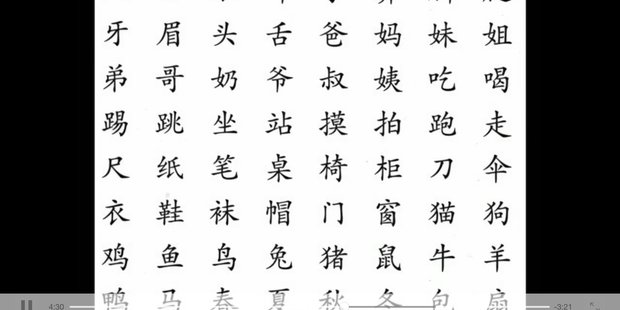 牙 眉 头 舌 爸 妈 妹 姐
弟 哥 奶 爷 叔 姨 吃 喝
踢 跳 坐 站 摸 拍 跑 走
尺 纸 笔 桌 椅 柜 刀 伞
衣 鞋 袜 帽 门 窗 猫 狗
鸡 鱼 鸟 兔 猪 鼠 牛 羊
鸭 马 春 夏 秋 冬 包 扇
4:30 -3:21